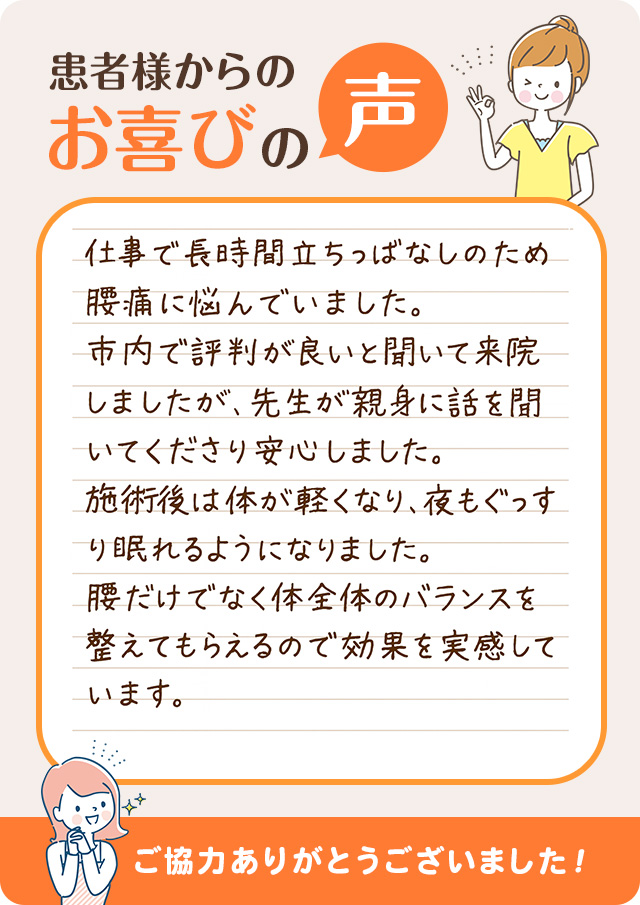 患者様からの
お喜びの声
仕事で長時間立ちっぱなしのため
腰痛に悩んでいました。
市内で評判が良いと聞いて来院
しましたが、先生が親身に話を聞
いてくださり安心しました。
施術後は体が軽くなり、夜もぐっす
り眠れるようになりました。
腰だけでなく体全体のバランスを
整えてもらえるので効果を実感して
います。
ご協力ありがとうございました!